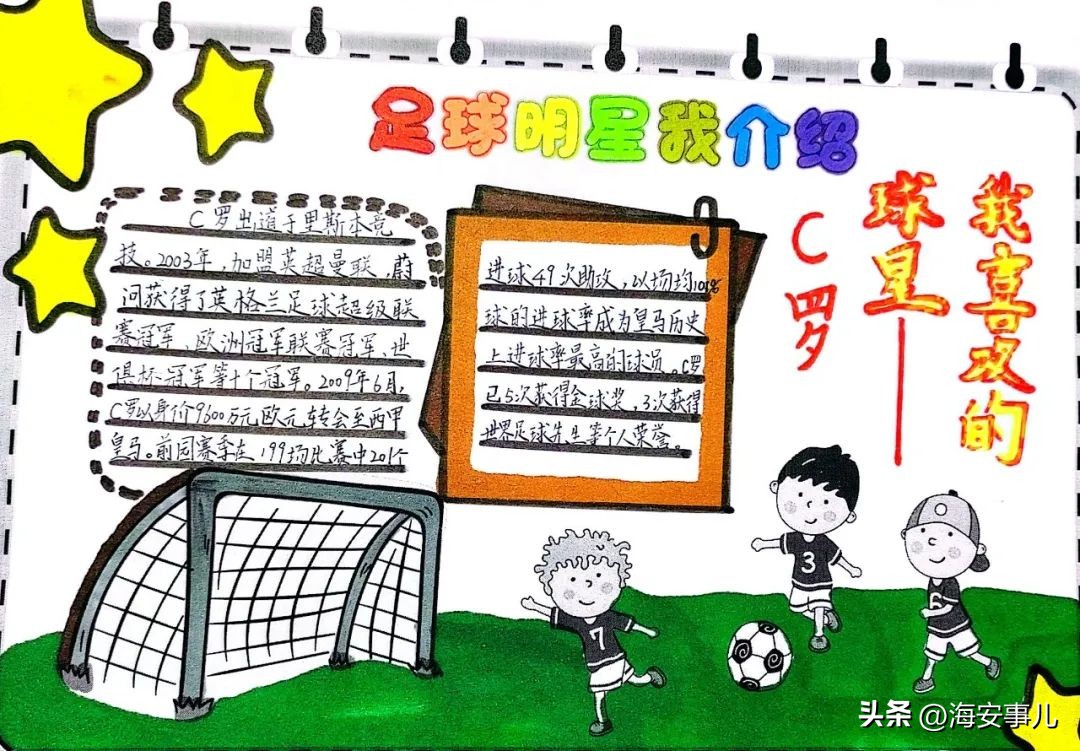 足球明星我介绍
我喜欢的
球星——
C罗
C罗出道于里斯本竞
技。2003年,加盟英超曼联,蔚
问获得了英格兰足球超级联
赛冠军、欧洲冠军联赛冠军、世
俱杯冠军等十个冠军。2009年6月,
C罗以身价9600万元欧元,转会至西甲
皇马。前四赛季在199场比赛中201个
进球49次助攻,以场均
球的进球率成为皇马历史
上进球率最高的球员。C罗
已5次获得金球奖,3次获得
世界足球先生等个人荣誉。
3
7
头条 @海安事儿